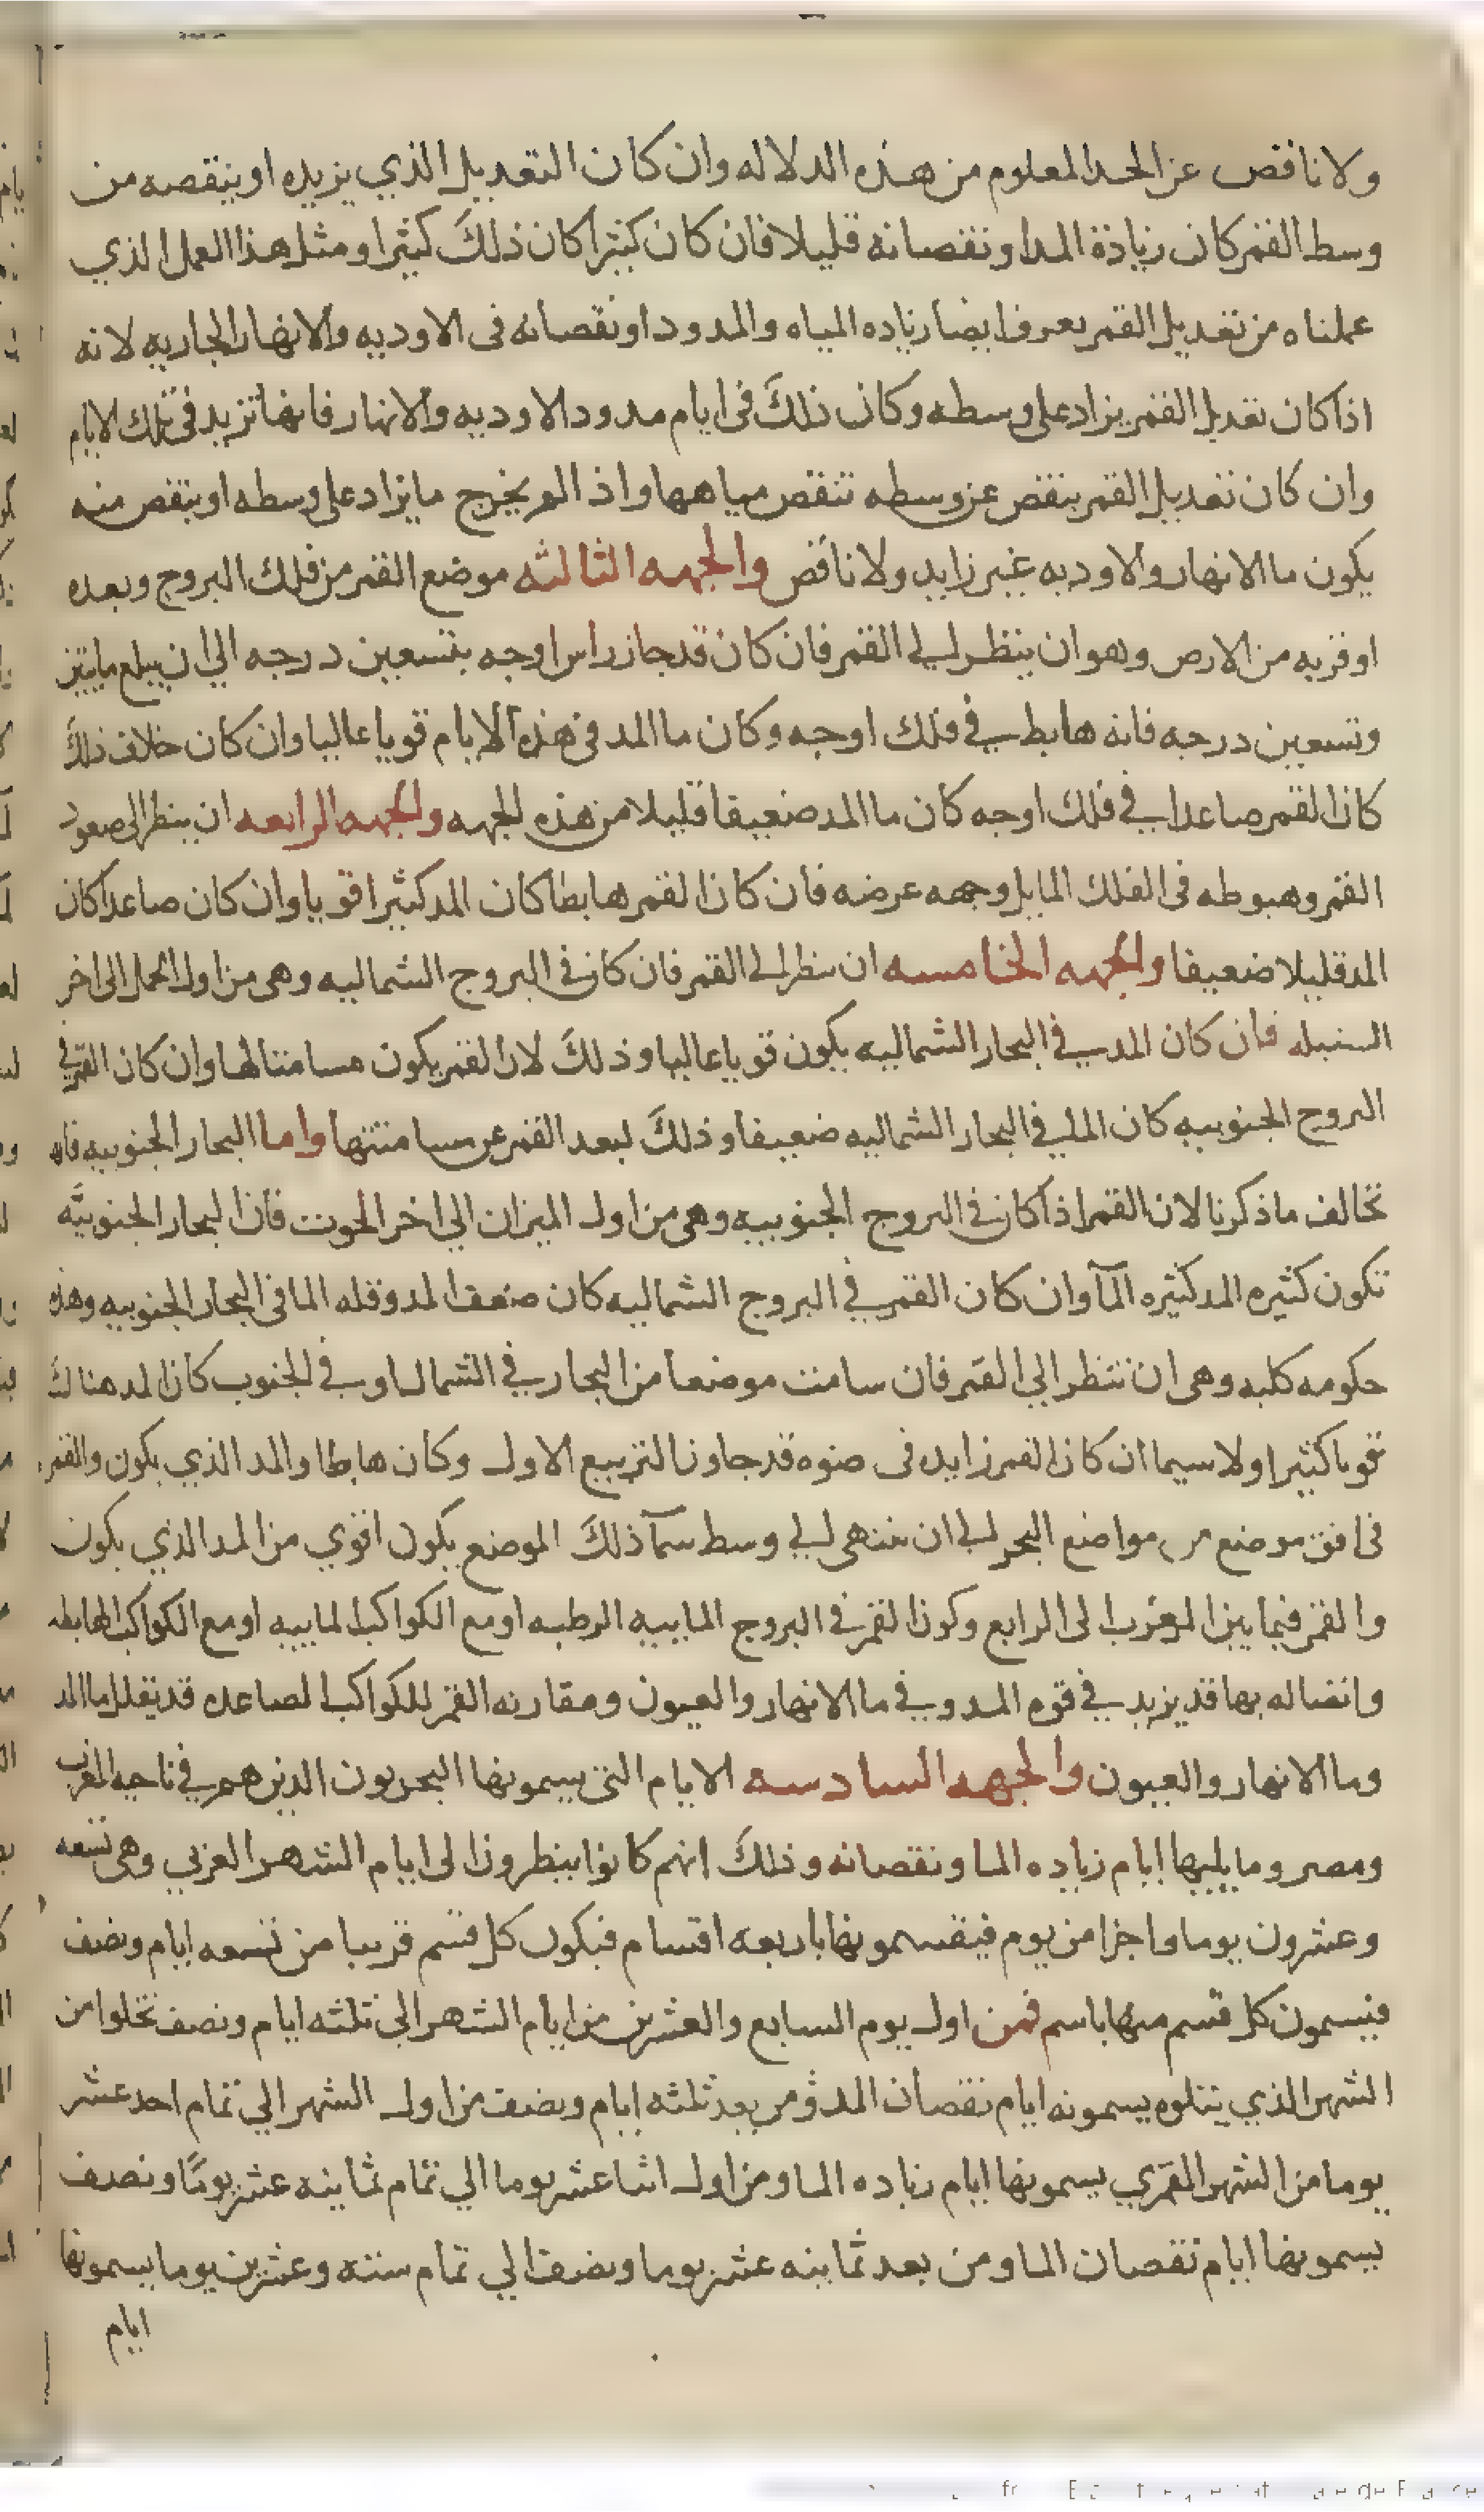 ولا ناقص عن الحد المعلوم من هذه الدلاله وان كان التعديل الذي يزيده او ينقصه من
وسط القمر كان زيادة المد او نقصانه قليلا فان كان كثيرا كان ذلك كثيرا ومثل هذا العمل الذي
عملناه من تعديل القمر يعرف ايضا زياده المياه والمدود او نقصانه فى الاوديه والانهار الجاريه لانه
اذا كان تعديل القمر يزاد على وسطه وكان ذلك فى ايام مدود الاوديه والانهار فانها تزيد فى تلك الايام
وان كان تعديل القمر ينقص عن وسطه تنقص مياهها واذا لم يخرج ما يزاد على وسطه او ينقص منه
يكون ما الانهار والاوديه غير زايد ولا ناقص والجهه الثالثه موضع القمر من فلك البروج وبعده
او قربه من الارض وهو ان ينظر الى القمر فان كان قد جاز راس اوجه بتسعين درجه الي ان يبلغ مايتين
وتسعين درجه فانه هابط في فلك اوجه وكان ما المد فى هذه الايام قويا عاليا وان كان خلاف ذلك
كان القمر صاعدا في فلك اوجه كان ما المد ضعيفا قليلا من هذه الجهه والجهه الرابعه ان ينظر الى صعود
القمر وهبوطه فى الفلك المايل وجهه عرضه فان كان القمر هابطا كان المد كثيرا قويا وان كان صاعدا كان
المد قليلا ضعيفا والجهه الخامسه ان ينظر الي القمر فان كان في البروج الشماليه وهى من اول الحمل الى اخر
السنبله فان كان المد في البحار الشماليه يكون قويا عاليا وذلك لان القمر يكون مسامتا لها وان كان القمر في
البروج الجنوبيه كان المد في البحار الشماليه ضعيفا وذلك لبعد القمر عن مسامتتها واما البحار الجنوبيه فانه
تخالف ما ذكرنا لان القمر اذا كان في البروج الجنوبيه وهى من اول الميزان الي اخر الحوت فان البحار الجنوبيه
تكون كثيره المد كثيره المآ وان كان القمر في البروج الشماليه كان ضعف المد وقله الما فى البحار الجنوبيه وهذه
حكومه كليه وهى ان تنظر الي القمر فان سامت موضعا من البحار في الشمال او في الجنوب كان المد هناك
قويا كثيرا ولا سيما ان كان القمر زايده فى ضوه قد جاوز التربيع الاول وكان هابطا والمد الذي يكون والقمر
فى افق موضع من مواضع البحر الي ان ينتهى الي وسط سمآ ذلك الموضع يكون اقوي من المد الذي يكون
والقمر فيما بين المغرب الى الرابع وكون القمر في البروج الماييه الرطبه او مع الكواكب الماييه او مع الكواكب الهابطه
واتصاله بها قد يزيد في قوه المد وفي ما الانهار والعيون ومقارنه القمر للكواكب الصاعده قد يقلل ما المد
وما الانهار والعيون والجهه السادسه الايام التي يسمونها البحريون الذين هم في ناحيه المغرب
ومصر وما يليها ايام زياده الما ونقصانه وذلك انهم كانوا ينظرون الى ايام الشهر العربي وهى تسعه
وعشرون يوما واجزا من يوم فيقسمونها باربعه اقسام فيكون كل قسم قريبا من تسعه ايام ونصف
فيسمون كل قسم منها باسم فمن اول يوم السابع والعشرين من ايام الشهر الي ثلثه ايام ونصف تخلوا من
الشهر الذي يتلوه يسمونه ايام نقصان المد ومن بعد ثلثه ايام ونصف من اول الشهر الي تمام احد عشر
يوما من الشهر القمري يسمونها ايام زياده الما ومن اول اثنا عشر يوما الي تمام ثمانيه عشر يومًا ونصف
يسمونها ايام نقصان الما ومن بعد ثمانيه عشر يوما ونصف الي تمام سته وعشرين يوما يسمونها
ايام